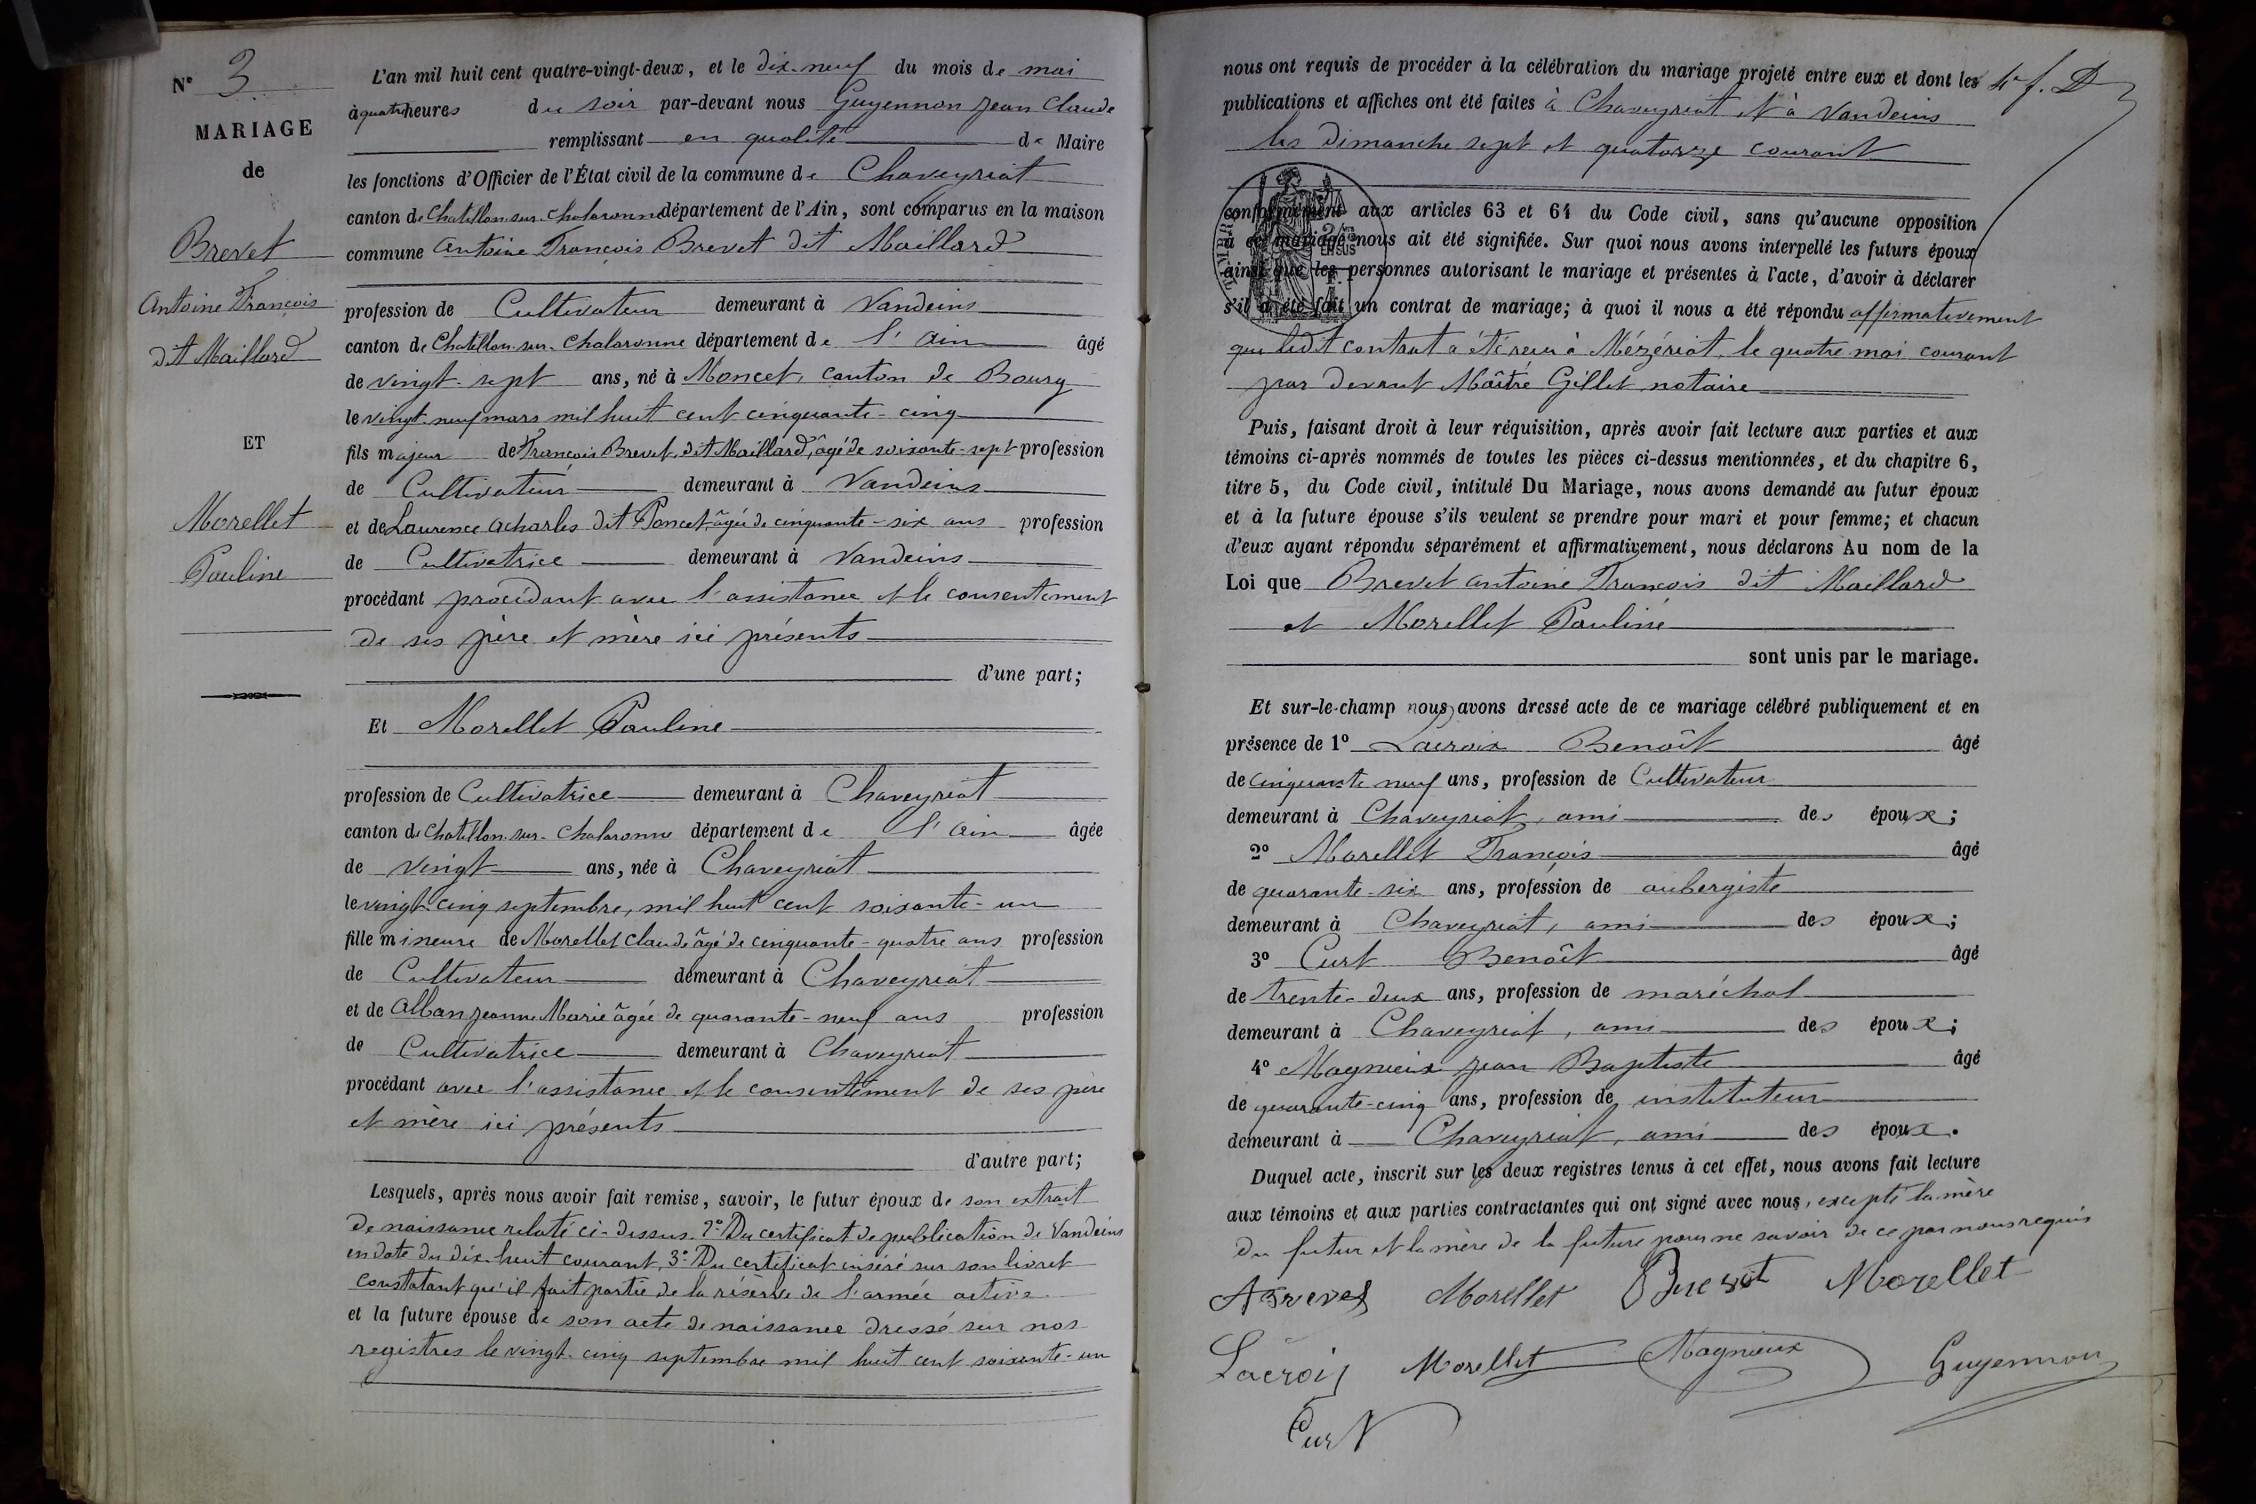 N° 3
MARIAGE
de
Brevet
Antoine François
dit Maillard
ET
Morellet
Pauline
L'an mil huit cent quatre-vingt-deux, et le dix-neuf du mois de mai
à quatre heures du soir par-devant nous Guyennon Jean Claude
remplissant en qualité de Maire
les fonctions d'Officier de l'État civil de la commune de Chaveyriat
canton de Chatillon-sur-Chalaronne département de l'Ain, sont comparus en la maison
commune Antoine François Brevet dit Maillard
profession de Cultivateur demeurant à Vandeins
canton de Chatillon-sur-Chalaronne département de l'Ain âgé
de vingt-sept ans, né à Moncet, canton de Bourg
le vingt-neuf mars mil huit cent cinquante-cinq
fils majeur de François Brevet, dit Maillard, âgé de soixante-sept profession
de Cultivateur demeurant à Vandeins
et de Laurence Acharles dit Poncet, âgée de cinquante-six ans profession
de Cultivatrice demeurant à Vandeins
procédant procédant avec l'assistance et le consentement
de ses père et mère ici présents
d'une part;
Et Morellet Pauline
profession de Cultivatrice demeurant à Chaveyriat
canton de Chatillon-sur-Chalaronne département de l'Ain âgée
de vingt ans, née à Chaveyriat
le vingt-cinq septembre, mil huit cent soixante-un
fille mineure de Morellet Claude âgé de cinquante-quatre ans profession
de Cultivateur demeurant à Chaveyriat
et de Alban Jeanne Marie âgée de quarante-neuf ans profession
de Cultivatrice demeurant à Chaveyriat
procédant avec l'assistance et le consentement de ses père
et mère ici présents
d'autre part;
Lesquels, après nous avoir fait remise, savoir, le futur époux de son extrait
de naissance relaté ci-dessus. 2° Du certificat de publication de Vandeins
en date du dix-huit courant, 3° Du certificat inséré sur son livret
constatant qu'il fait partie de la réserve de l'armée active
et la future épouse de son acte de naissance dressé sur nos
registres le vingt-cinq septembre mil huit cent soixante-un
nous ont requis de procéder à la célébration du mariage projeté entre eux et dont les
publications et affiches ont été faites à Chaveyriat et à Vandeins
les dimanche sept et quatorze courant
TIMBRE
2/5
EN SUS
conformément aux articles 63 et 64 du Code civil, sans qu'aucune opposition
à ce mariage nous ait été signifiée. Sur quoi nous avons interpellé les futurs époux
ainsi que les personnes autorisant le mariage et présentes à l'acte, d'avoir à déclarer
s'il a été fait un contrat de mariage; à quoi il nous a été répondu affirmativement
que ledit contrat a été reçu à Mézériat, le quatre mai courant
par devant Maître Gillet notaire
Puis, faisant droit à leur réquisition, après avoir fait lecture aux parties et aux
témoins ci-après nommés de toutes les pièces ci-dessus mentionnées, et du chapitre 6,
titre 5, du Code civil, intitulé Du Mariage, nous avons demandé au futur époux
et à la future épouse s'ils veulent se prendre pour mari et pour femme; et chacun
d'eux ayant répondu séparément et affirmativement, nous déclarons Au nom de la
Loi que Brevet Antoine François dit Maillard
et Morellet Pauline
sont unis par le mariage.
Et sur-le-champ nous avons dressé acte de ce mariage célébré publiquement et en
présence de 1° Lacroix Benoît âgé
de cinquante neuf ans, profession de Cultivateur
demeurant à Chaveyriat, ami des époux;
2° Morellet François âgé
de quarante-six ans, profession de aubergiste
demeurant à Chaveyriat, ami des époux;
3° Curt Benoît âgé
de trente-deux ans, profession de maréchal
demeurant à Chaveyriat, ami des époux;
4° Magnieux Jean Baptiste âgé
de quarante-cinq ans, profession de instituteur
demeurant à Chaveyriat, ami des époux.
Duquel acte, inscrit sur les deux registres tenus à cet effet, nous avons fait lecture
aux témoins et aux parties contractantes qui ont signé avec nous, excepté la mère
du futur et la mère de la future pour ne savoir de ce par nous requis
A Brevet Morellet Brevet Morellet
Lacroix Morellet Magnieux Guyennon
Curt